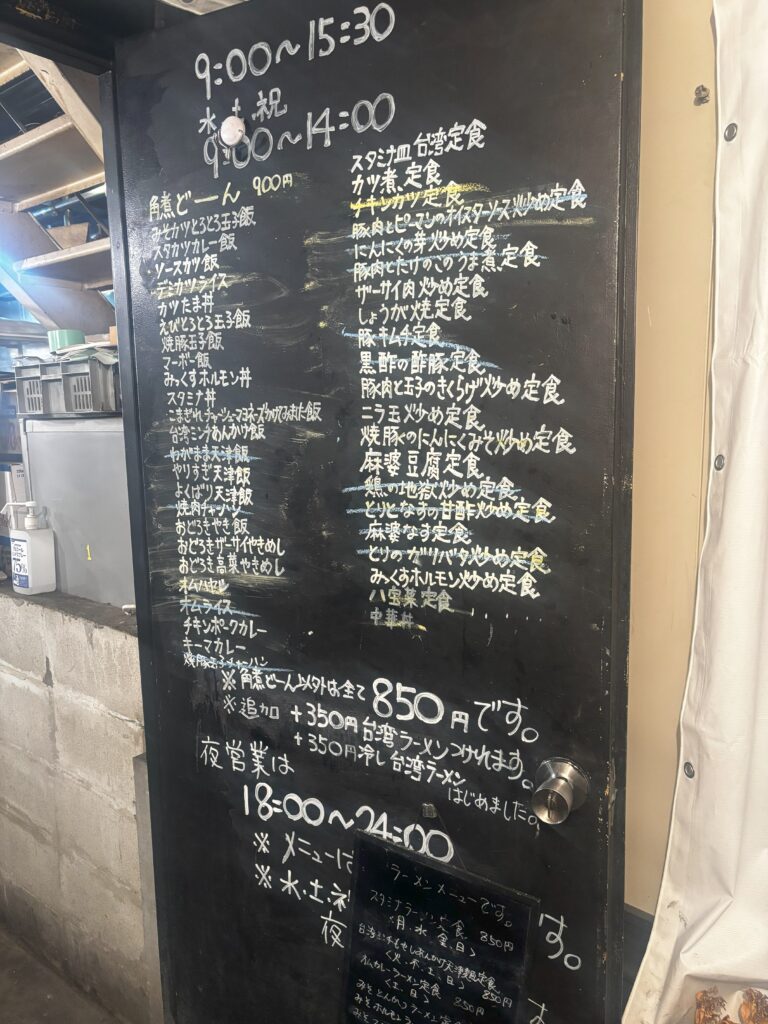 9:00〜15:30
水.土.祝
9:00〜14:00
角煮どーん 900円
みそカツとろとろ玉子飯
スタカツカレー飯
ソースカツ飯
デミカツライス
カツたま丼
えびとろとろ玉子飯
焼豚玉子飯
マーボー飯
みっくすホルモン丼
スタミナ丼
こまぎれチャーシューマヨネーズかけてみました飯
台湾ミンチあんかけ飯
わがまま天津飯
やりすぎ天津飯
よくばり天津飯
焼肉チャーハン
おどろきやき飯
おどろきザーサイやきめし
おどろき高菜やきめし
オムハヤシ
オムライス
チキンポークカレー
キーマカレー
焼豚玉子チャーハン
スタミナ皿 台湾定食
カツ煮、定食
チキンカツ定食
豚肉とピーマンのオイスターソース炒め定食
にんにくの芽炒め定食
豚肉とたけのこのうま煮、定食
ザーサイ肉炒め定食
しょうが焼定食
豚キムチ定食
黒酢の酢豚定食
豚肉と玉子のきくらげ炒め定食
ニラ玉炒め定食
焼豚のにんにくみそ炒め定食
麻婆豆腐定食
鶏の地獄炒め定食
とりとなすの甘酢炒め定食
麻婆なす定食
とりのガリバタ炒め定食
みっくすホルモン炒め定食
八宝菜定食
中華丼
※角煮どーん以外は全て850円です。
※追加 +350円台湾ラーメンつけれます。
+350円冷し台湾ラーメン
はじめました。
夜営業は
18:00〜24:00
※メニューは
※水.土.
夜
す。
ラーメンメニューです。
スタミナラーメン定食 850円
(月、水、金、日)
天津麺定食
(火、木、土、日) 850円
カレーラーメン定食
(土、日) 850円
みそとんかつラーメン定食
みそホルモン